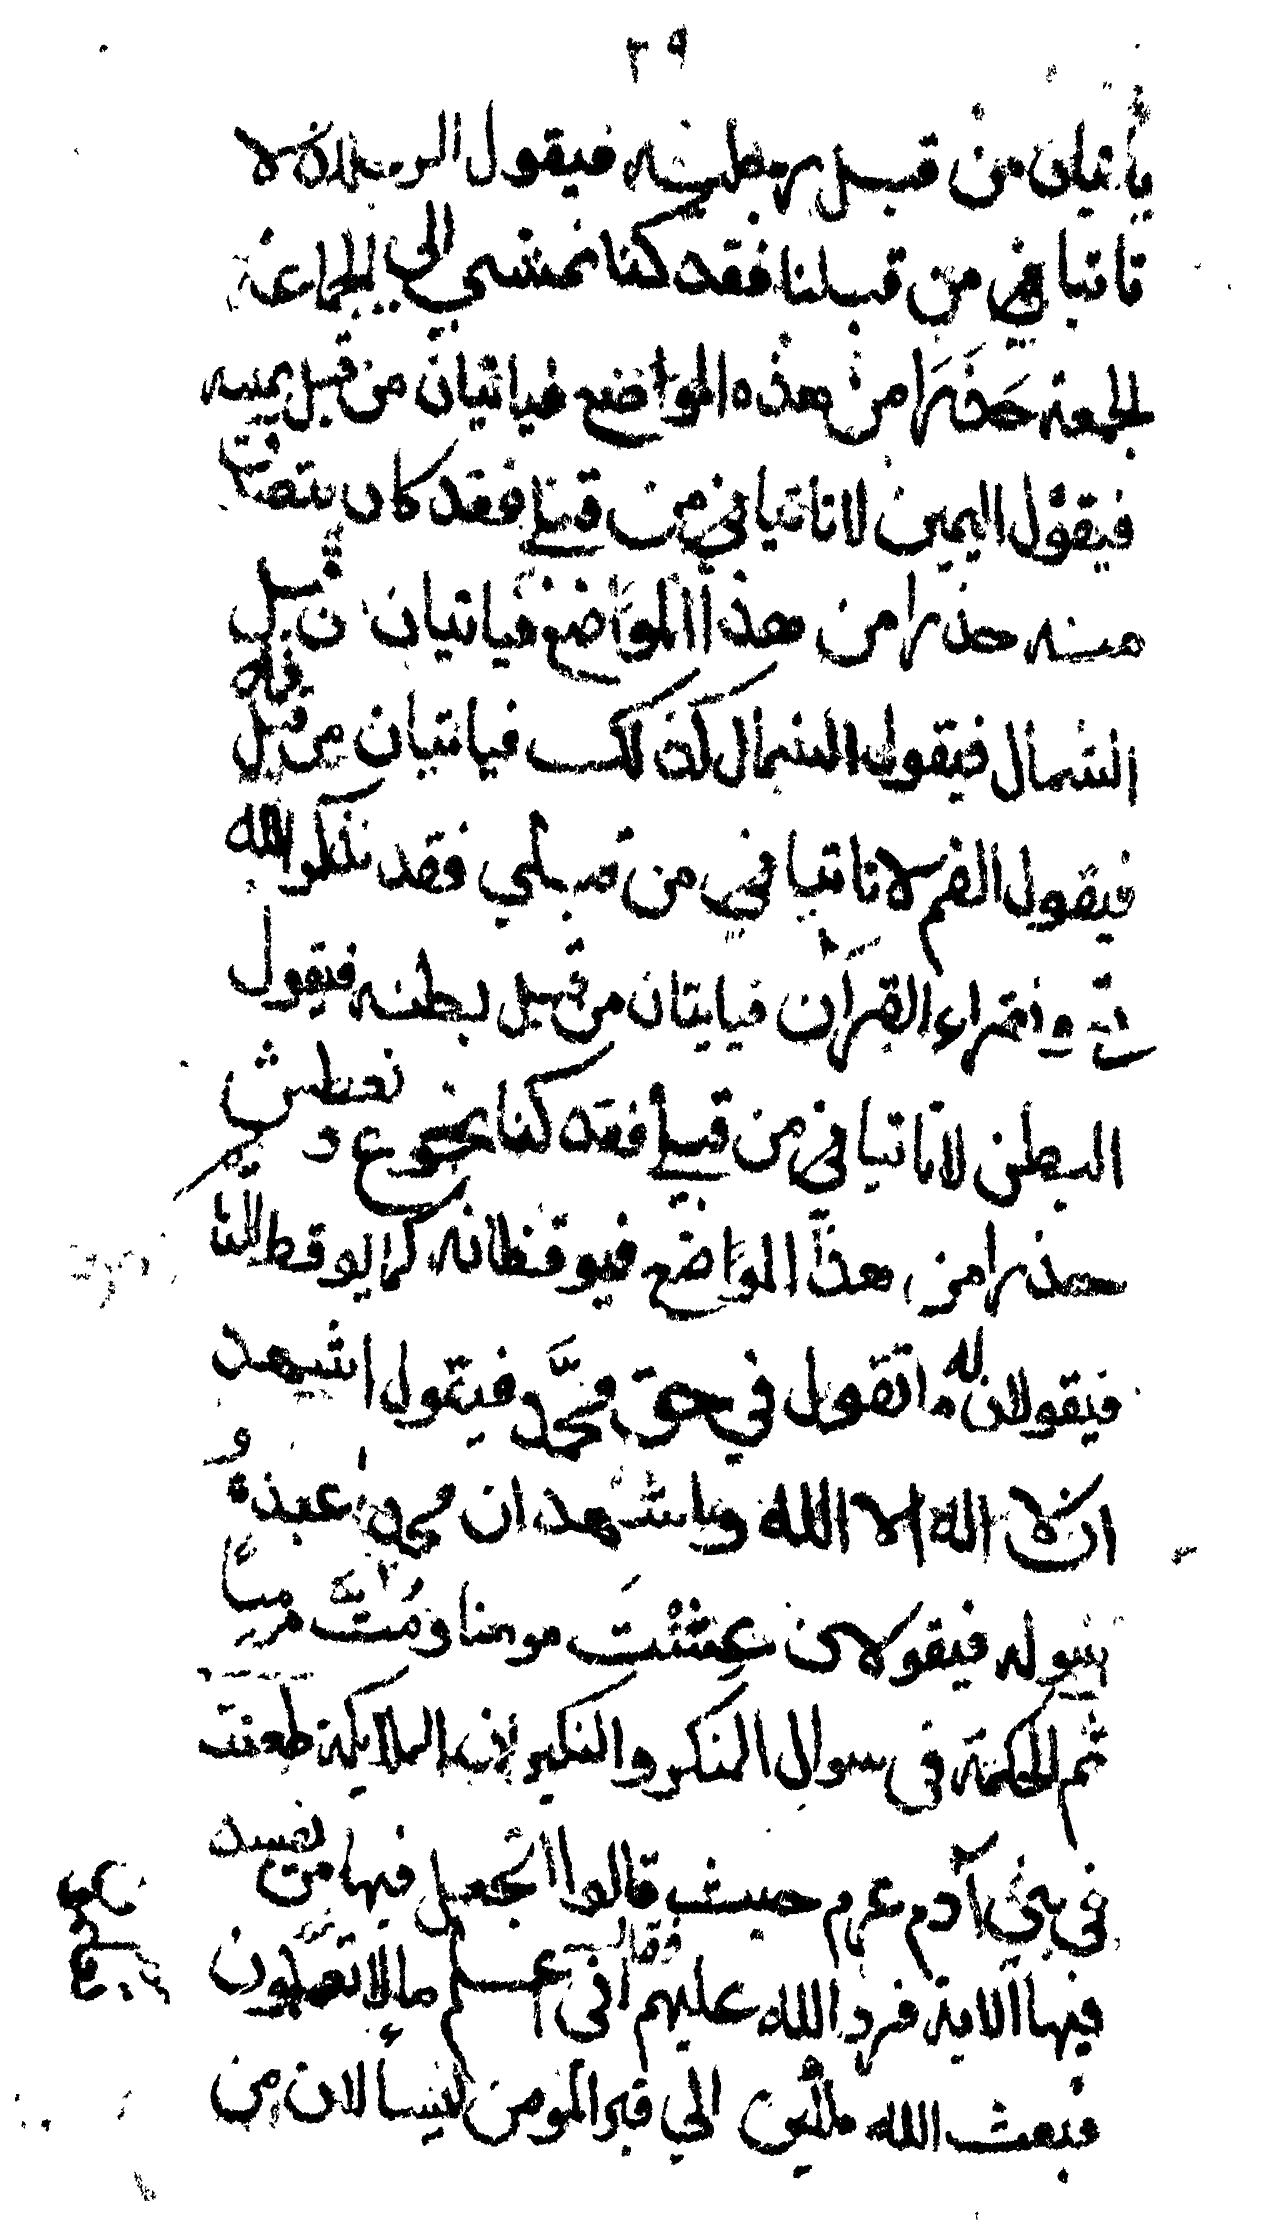 ٢٩
يأتيان من قبل بطنه فيقول الرجلان لا
تاتيا في من قبلنا فقد كنا نمشي الي الجماعة
الجمعة حذرا من هذه المواضع فياتيان من قبل يمينه
فيقول اليمين لا تاتيا في من قبلي فقد كان يتصدق
منه حذرا من هذا المواضع فياتيان قبل
الشمال فيقول الشمال كذلك فياتيان من قبل فيه
فيقول الفم لا تاتيا في من قبلي فقد نذكر الله
في وقراء القرآن فياتيان من قبل بطنه فيقول
البطن لا تاتيا في من قبلي فقد كنا نجوع و نعطش
حذرا من هذا المواضع فيوقظانه كما يوقظ النا
فيقولان له ما تقول في حق محمد فيقول اشهد
ان لا اله الا الله واشهد ان محمدا عبده و
رسوله فيقولان عشت مومنا ومت
ثم الحكمة في سوال المنكر والنكير لان الملايكة طعنت
في بني آدم عم حيث قالوا اتجعل فيها من يفسد
فيها الاية فرد الله عليهم وقال اني اعلم ما لا تعلمون
فبعث الله ملكين الي قبر المومن ليسألان من